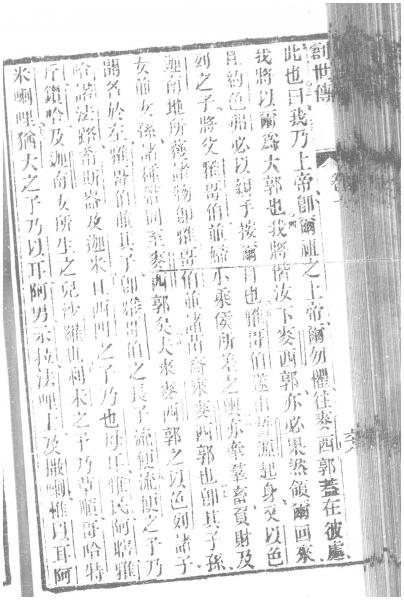 創世傳
此也曰我乃上帝即爾祖之上帝爾勿懼往麥西郭蓋在彼處
我將以爾為大郭也我將偕汝下麥西郭亦必果然領爾回來
且約色弗必以鎖手按爾目也雅哥伯遂由是源起身又以色
列之子將父雅哥伯並婦小乘侯所差之車亦牽羣畜貨財及
迦南地所獲諸物即雅哥伯並諸苗裔來麥西郭也即其子孫
女前女孫諸種偕同至麥西郭矣夫來麥西郭之以色列諸子
開名於左雅哥伯並其子即雅哥伯之長子流便流便之子乃
哈諾法路希斯崙及迦米且西門之子乃也母耳雅民阿轄雅
斤鎖哈及迦南女所生之兒沙羅也利未之子乃革順哥哈特
米喇哩猶大之子乃以耳阿男示拉法哩士及撒喇惟以耳阿